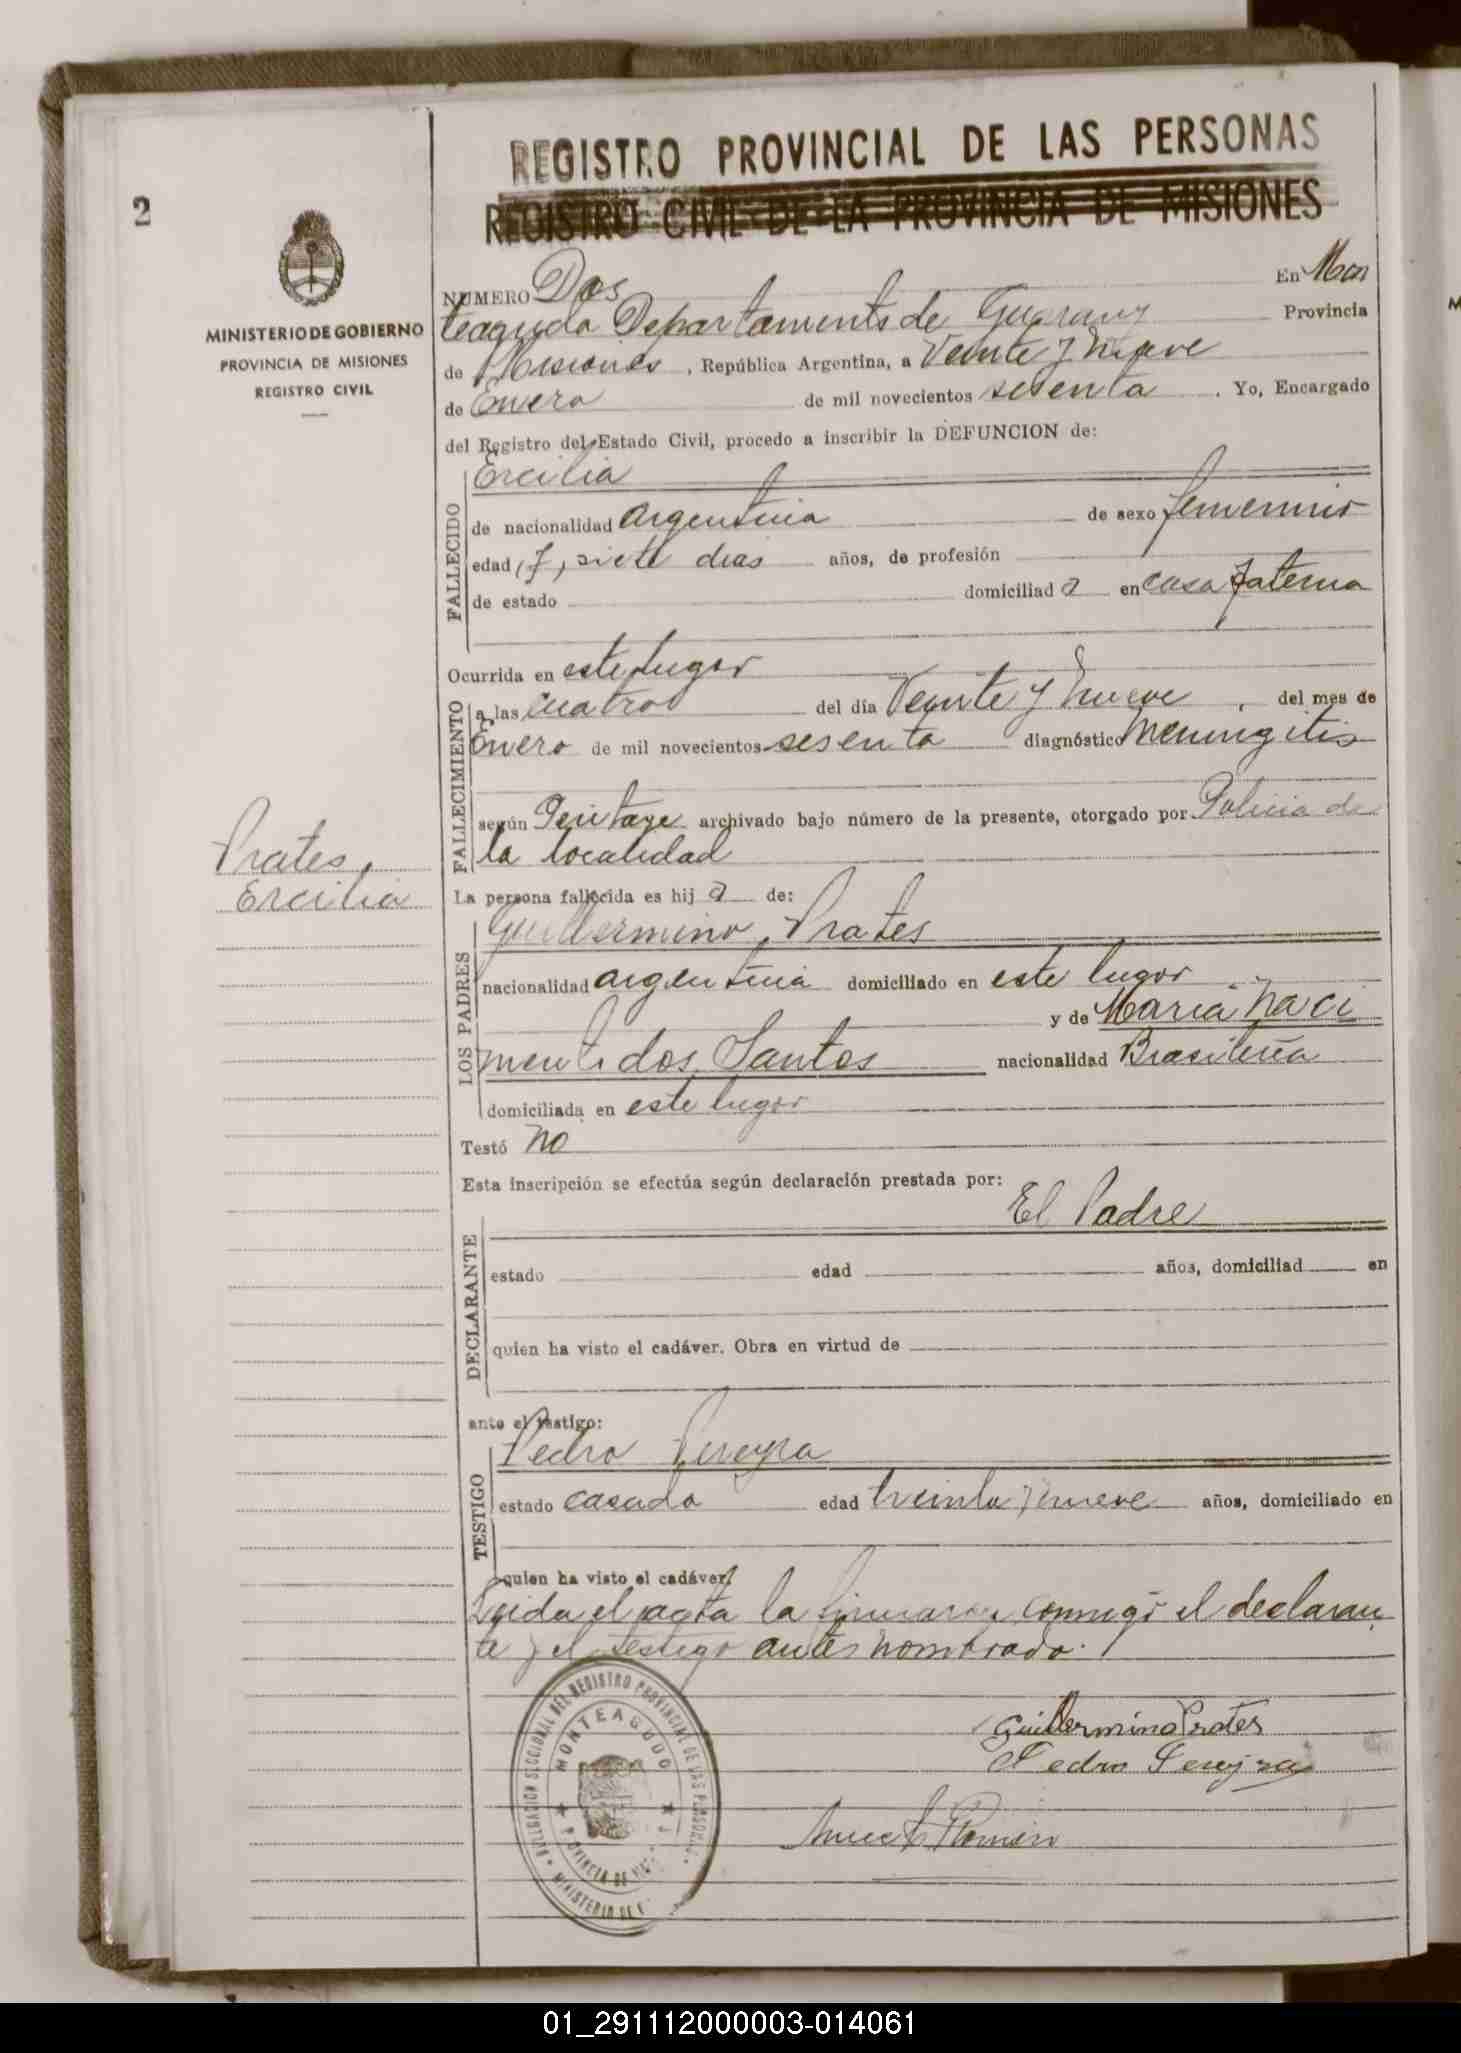 REGISTRO PROVINCIAL DE LAS PERSONAS
REGISTRO CIVIL DE LA PROVINCIA DE MISIONES
2
MINISTERIO DE GOBIERNO
PROVINCIA DE MISIONES
REGISTRO CIVIL
NUMERO Dos En Mon
teagudo Departamento de Guarany Provincia
de Misiones, República Argentina, a Veinte y nueve
de Enero de mil novecientos sesenta. Yo, Encargado
del Registro del Estado Civil, procedo a inscribir la DEFUNCION de:
Ercilia
FALLECIDO
de nacionalidad argentina de sexo femenino
edad, 7, siete dias años, de profesión
de estado domiciliad a en casa paterna
Ocurrida en este lugar
FALLECIMIENTO
a las cuatro del día Veinte y nueve, del mes de
Enero de mil novecientos sesenta diagnóstico Meningitis
según Peritaje archivado bajo número de la presente, otorgado por Policia de
la localidad
Prates,
Ercilia
La persona fallecida es hij a de:
Guillermino Prates
LOS PADRES
nacionalidad argentina domiciliado en este lugar
y de Maria Naci
mento dos Santos nacionalidad Brasileña
domiciliada en este lugar
Testó no
Esta inscripción se efectúa según declaración prestada por:
El Padre
DECLARANTE
estado edad años, domiciliad en
quien ha visto el cadáver. Obra en virtud de
ante el testigo:
Pedro Pereyra
TESTIGO
estado casado edad treinta y nueve años, domiciliado en
quien ha visto el cadáver.
Leida el acta la firmaron conmigo el declaran
te y el testigo antes nombrado.
DELEGACION SECCIONAL DEL REGISTRO PROVINCIAL DE LAS PERSONAS
MONTEAGUDO
PROVINCIA DE
MINISTERIO DE
Guillermino Prates
Pedro Pereyra
01_291112000003-014061